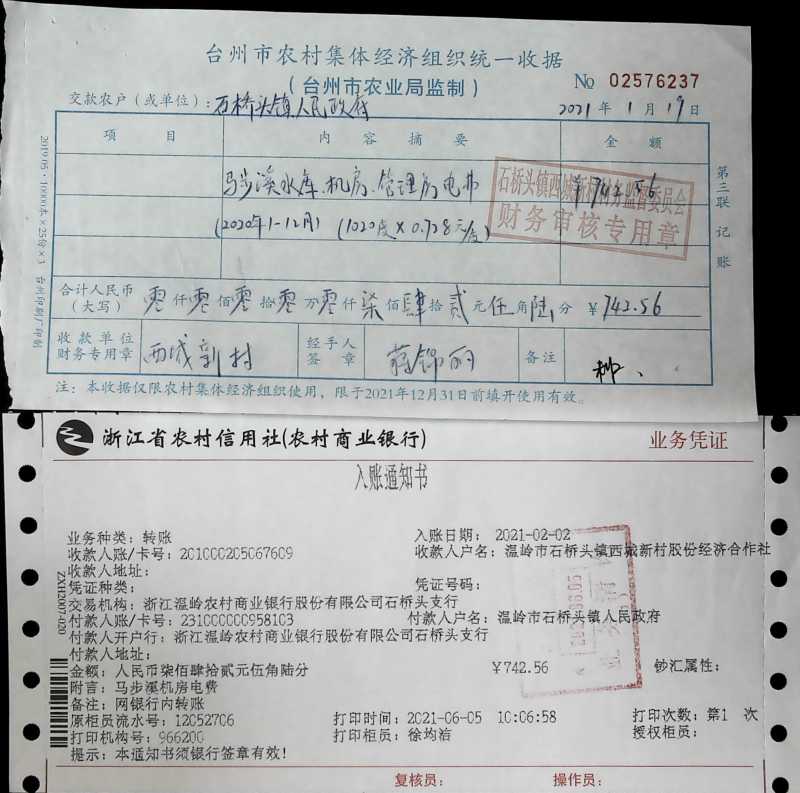 台州市农村集体经济组织统一收据
(台州市农业局监制)
№ 02576237
交款农户(或单位):石桥头镇人民政府
2021年1月19日
项目 内容摘要 金额
马步溪水库.机房.管理房电费 ¥742.56
(2020年1-12月) (1020度×0.728元/度)
石桥头镇西城新村村务监督委员会
财务审核专用章
合计人民币(大写) 零仟零佰零拾零万零仟柒佰肆拾贰元伍角陆分 ¥742.56
收款单位财务专用章 西城新村 经手人签章 蒋锦丽 备注
注:本收据仅限农村集体经济组织使用,限于2021年12月31日前填开使用有效。
2019.05·10000本×25份×3 台州印刷厂印制
第三联 记账
浙江省农村信用社(农村商业银行) 业务凭证
入账通知书
业务种类:转账 入账日期:2021-02-02
收款人账/卡号:201000205067609 收款人户名:温岭市石桥头镇西城新村股份经济合作社
收款人地址:
凭证种类: 凭证号码:
交易机构:浙江温岭农村商业银行股份有限公司石桥头支行
付款人账/卡号:231000000958103 付款人户名:温岭市石桥头镇人民政府
付款人开户行:浙江温岭农村商业银行股份有限公司石桥头支行
付款人地址:
金额:人民币柒佰肆拾贰元伍角陆分 ¥742.56 钞汇属性:
附言:马步溪机房电费
备注:网银行内转账
原柜员流水号:12052706 打印时间:2021-06-05 10:06:58 打印次数:第1 次
打印机构号:966200 打印柜员:徐均洁 授权柜员:
提示:本通知书须银行签章有效!
复核员: 操作员:
ZXH2007-020